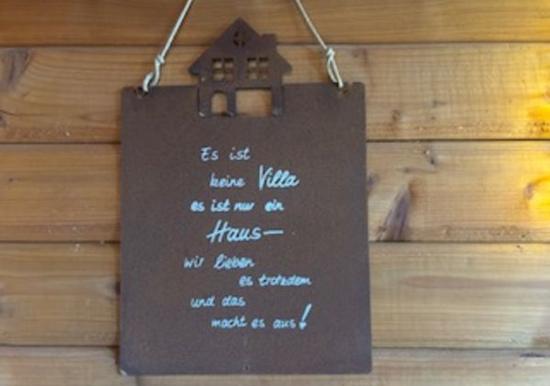 Es ist
keine Villa
es ist nur ein
Haus—
wir lieben
es trotzdem
und das
macht es aus!